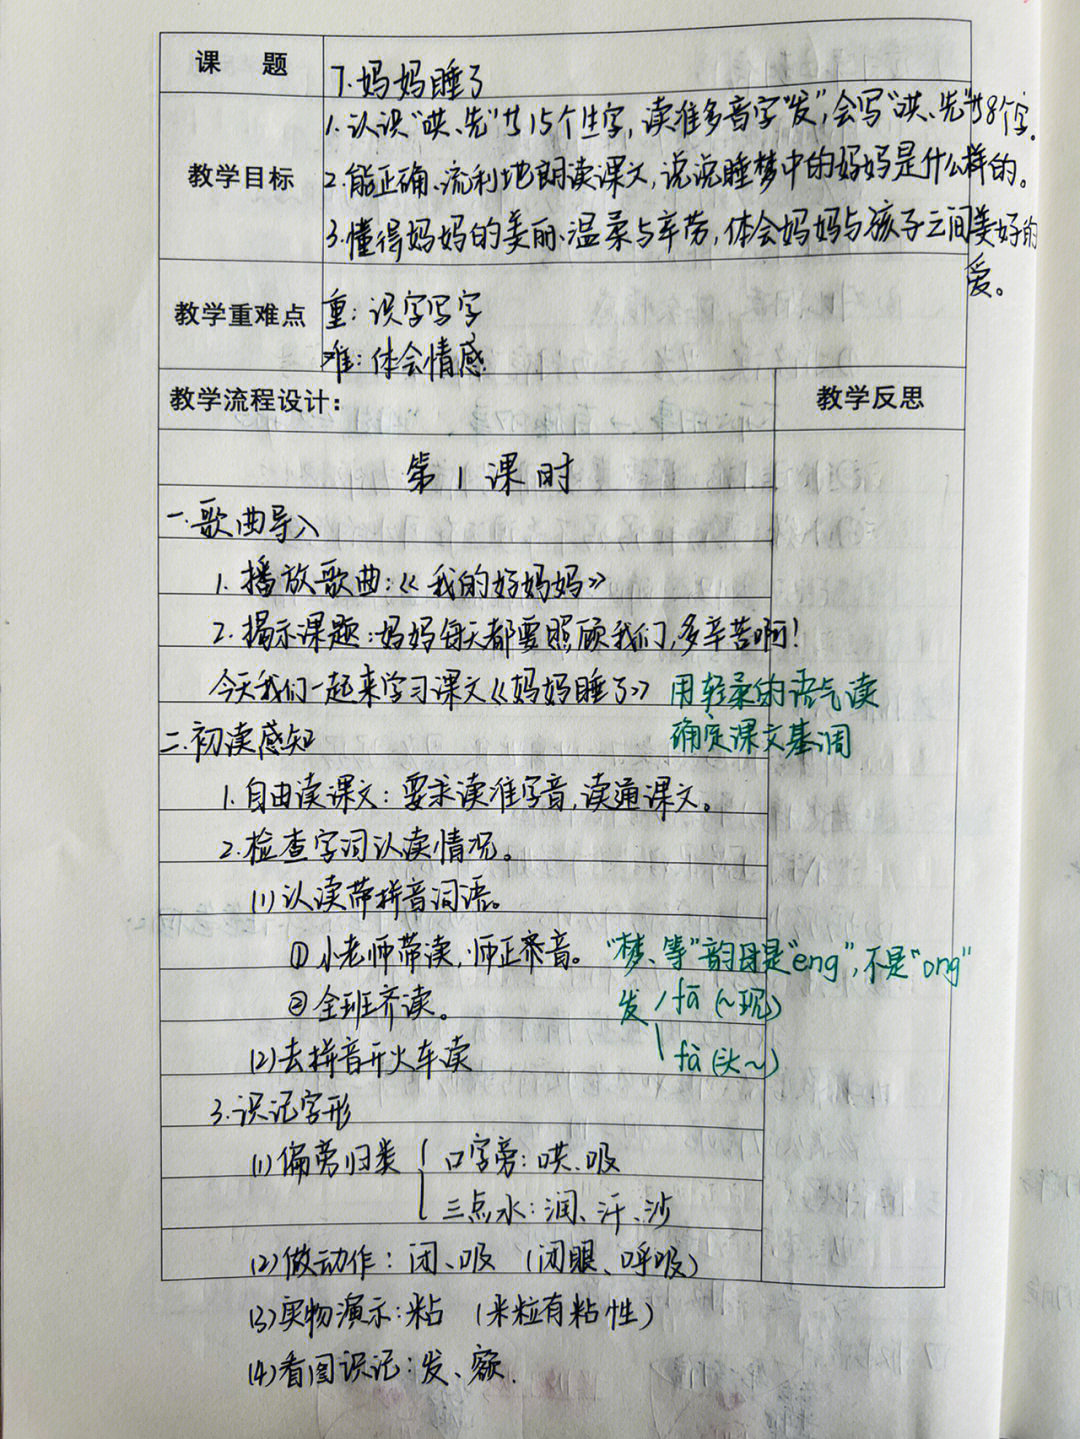 课 题
7.妈妈睡了
教学目标
1.认识“哄、先”等15个生字,读准多音字“发”,会写“哄、先”等8个字.
2.能正确、流利地朗读课文,说说睡梦中的妈妈是什么样的。
3.懂得妈妈的美丽、温柔与辛劳,体会妈妈与孩子之间美好的
爱。
教学重难点
重: 识字写字
难: 体会情感
教学流程设计:
教学反思
第1课时
一.歌曲导入
1.播放歌曲:《我的好妈妈》
2.揭示课题:妈妈每天都要照顾我们,多辛苦啊!
今天我们一起来学习课文《妈妈睡了》 用轻柔的语气读
确定课文基调
二.初读感知
1.自由读课文: 要求读准字音,读通课文。
2.检查字词认读情况。
(1)认读带拼音词语。
①小老师带读,师正音。 “梦、等”韵母是“eng”,不是“ong”
②全班齐读。 发 fā (~现)
fà (头~)
(2)去拼音开火车读
3.识记字形
(1)偏旁归类 口字旁: 哄、吸
三点水: 润、汗、沙
(2)做动作: 闭、吸 (闭眼、呼吸)
(3)实物演示: 粘 (米粒有粘性)
(4)看图识记: 发、额.